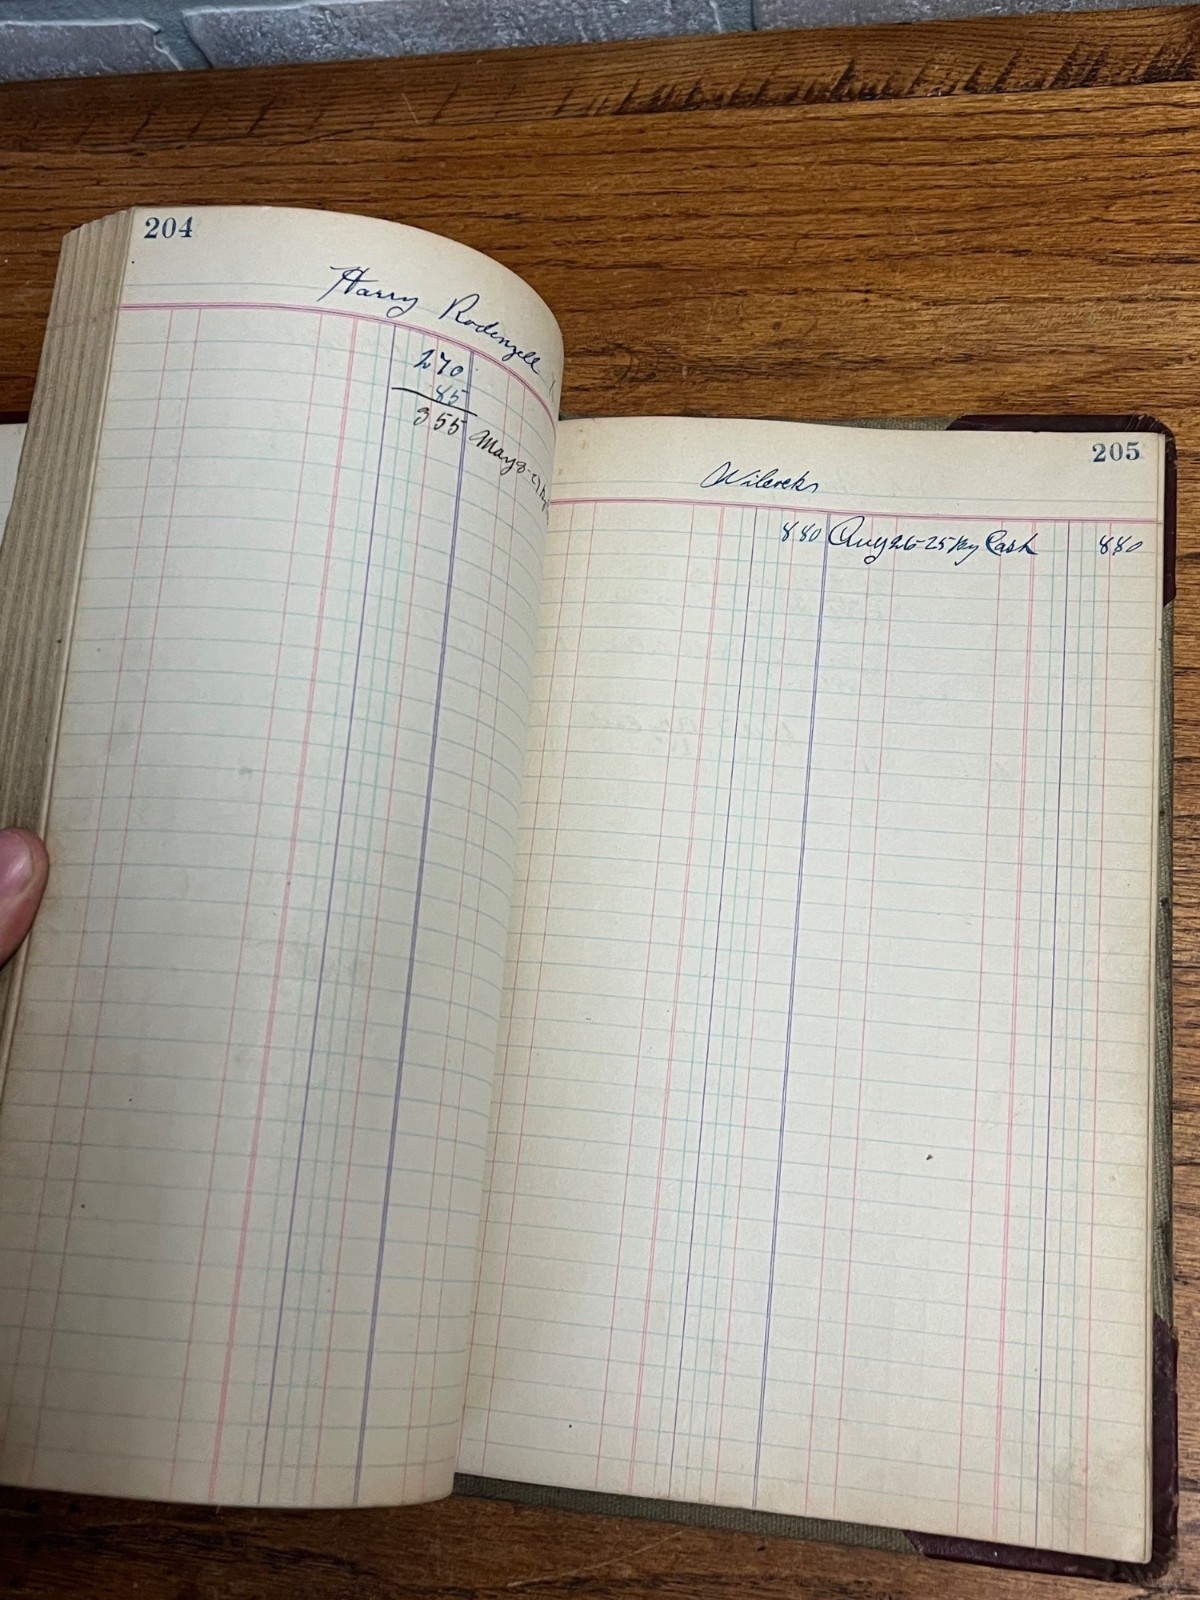 204
Harry Rodenzell
270
85
355 May 8-
205
Wilcreks
880 Aug 26-25 By Cash 880